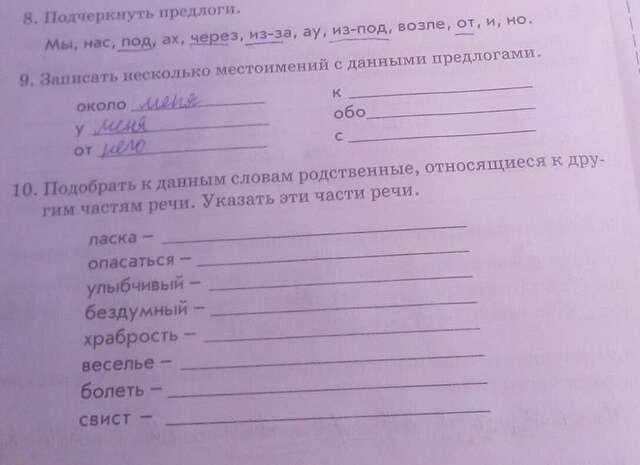 8. Подчеркнуть предлоги.
Мы, нас, под, ах, через, из-за, ау, из-под, возле, от, и, но.
9. Записать несколько местоимений с данными предлогами.
около меня
к
у меня
обо
от него
с
10. Подобрать к данным словам родственные, относящиеся к дру-
гим частям речи. Указать эти части речи.
ласка –
опасаться –
улыбчивый –
бездумный –
храбрость –
веселье –
болеть –
свист –